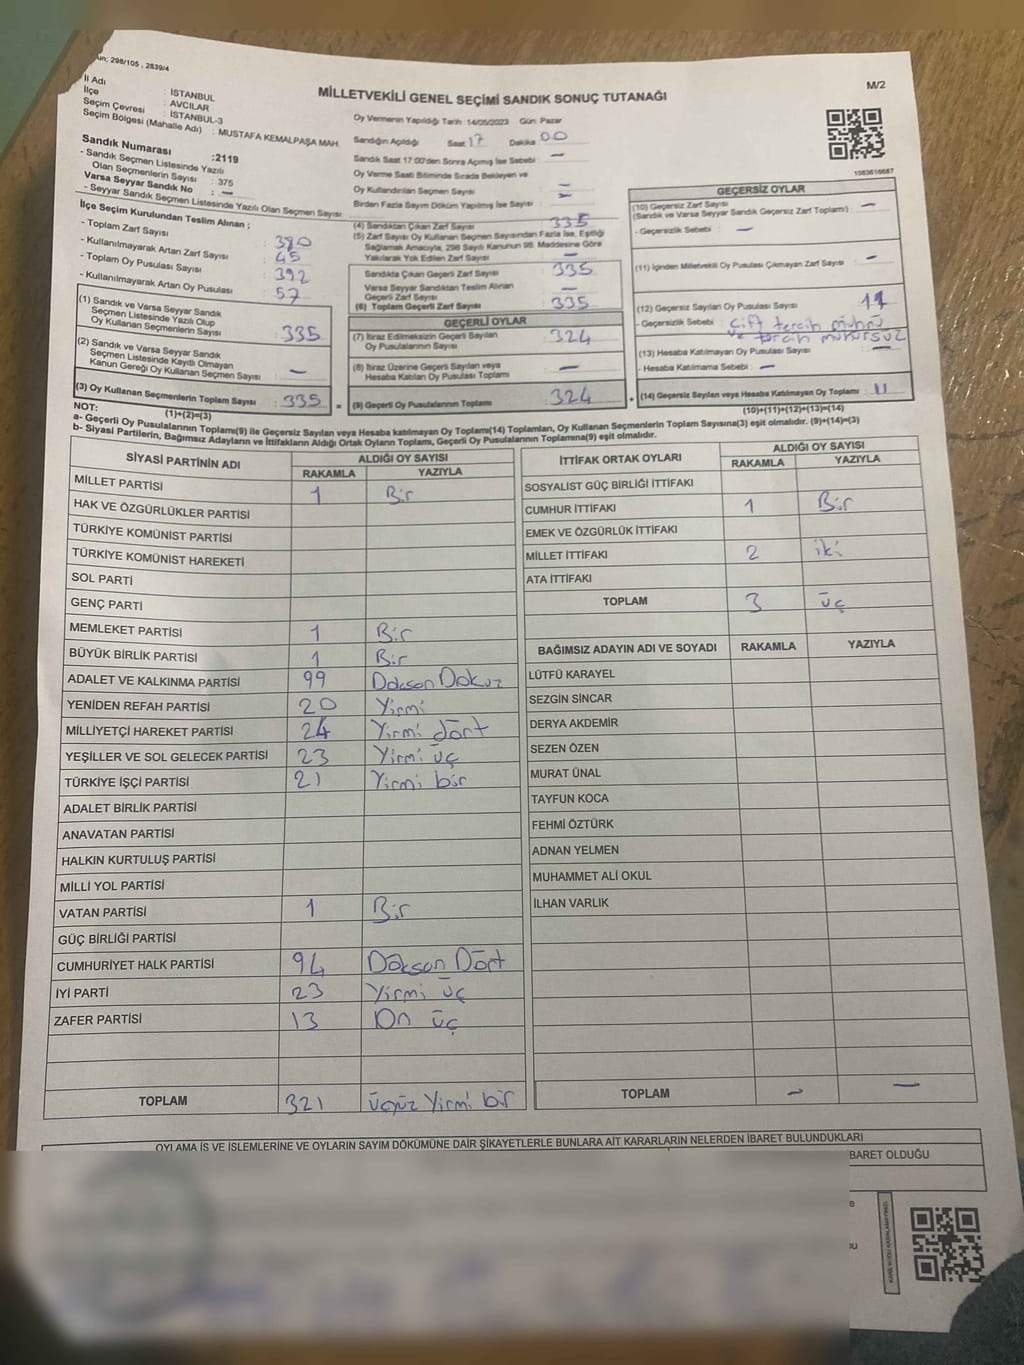 298/105 , 2839/4
İl Adı : İSTANBUL
İlçe : AVCILAR
Seçim Çevresi : İSTANBUL-3
Seçim Bölgesi (Mahalle Adı) : MUSTAFA KEMALPAŞA MAH.
MİLLETVEKİLİ GENEL SEÇİMİ SANDIK SONUÇ TUTANAĞI
M/2
Oy Vermenin Yapıldığı Tarih: 14/05/2023 Gün: Pazar
Sandığın Açıldığı Saat 17 Dakika 00
Sandık Saat 17:00'den Sonra Açılmış İse Sebebi : —
Oy Verme Saati Bitiminde Sırada Bekleyen ve
Oy Kullandırılan Seçmen Sayısı : —
Birden Fazla Sayım Döküm Yapılmış İse Sayısı : —
1083616687
Sandık Numarası : 2119
- Sandık Seçmen Listesinde Yazılı
Olan Seçmenlerin Sayısı : 375
Varsa Seyyar Sandık No : —
- Seyyar Sandık Seçmen Listesinde Yazılı Olan Seçmen Sayısı:
İlçe Seçim Kurulundan Teslim Alınan ;
- Toplam Zarf Sayısı : 380
- Kullanılmayarak Artan Zarf Sayısı : 45
- Toplam Oy Pusulası Sayısı : 392
- Kullanılmayarak Artan Oy Pusulası : 57
(1) Sandık ve Varsa Seyyar Sandık
Seçmen Listesinde Yazılı Olup
Oy Kullanan Seçmenlerin Sayısı : 335
(2) Sandık ve Varsa Seyyar Sandık
Seçmen Listesinde Kayıtlı Olmayan
Kanun Gereği Oy Kullanan Seçmen Sayısı : —
(3) Oy Kullanan Seçmenlerin Toplam Sayısı : 335
(1)+(2)=(3)
(4) Sandıktan Çıkan Zarf Sayısı : 335
(5) Zarf Sayısı Oy Kullanan Seçmen Sayısından Fazla İse, Eşitliği
Sağlamak Amacıyla, 298 Sayılı Kanunun 98. Maddesine Göre
Yakılarak Yok Edilen Zarf Sayısı : —
Sandıkta Çıkan Geçerli Zarf Sayısı : 335
Varsa Seyyar Sandıktan Teslim Alınan
Geçerli Zarf Sayısı : —
(6) Toplam Geçerli Zarf Sayısı : 335
GEÇERLİ OYLAR
(7) İtiraz Edilmeksizin Geçerli Sayılan
Oy Pusulalarının Sayısı : 324
(8) İtiraz Üzerine Geçerli Sayılan veya
Hesaba Katılan Oy Pusulası Toplamı : —
= (9) Geçerli Oy Pusulalarının Toplamı : 324
GEÇERSİZ OYLAR
(10) Geçersiz Zarf Sayısı
(Sandık ve Varsa Seyyar Sandık Geçersiz Zarf Toplamı) : —
- Geçersizlik Sebebi : —
(11) İçinden Milletvekili Oy Pusulası Çıkmayan Zarf Sayısı : —
(12) Geçersiz Sayılan Oy Pusulası Sayısı : 11
- Geçersizlik Sebebi : çift tercih mührü
ve tercih mühürsüz
(13) Hesaba Katılmayan Oy Pusulası Sayısı : —
- Hesaba Katılmama Sebebi : —
+ (14) Geçersiz Sayılan veya Hesaba Katılmayan Oy Toplamı : 11
(10)+(11)+(12)+(13)=(14)
NOT:
a- Geçerli Oy Pusulalarının Toplamı(9) ile Geçersiz Sayılan veya Hesaba katılmayan Oy Toplamı(14) Toplamları, Oy Kullanan Seçmenlerin Toplam Sayısına(3) eşit olmalıdır. (9)+(14)=(3)
b- Siyasi Partilerin, Bağımsız Adayların ve İttifakların Aldığı Ortak Oyların Toplamı, Geçerli Oy Pusulalarının Toplamına(9) eşit olmalıdır.
SİYASİ PARTİNİN ADI ALDIĞI OY SAYISI
RAKAMLA YAZIYLA
MİLLET PARTİSİ 1 Bir
HAK VE ÖZGÜRLÜKLER PARTİSİ
TÜRKİYE KOMÜNİST PARTİSİ
TÜRKİYE KOMÜNİST HAREKETİ
SOL PARTİ
GENÇ PARTİ
MEMLEKET PARTİSİ 1 Bir
BÜYÜK BİRLİK PARTİSİ 1 Bir
ADALET VE KALKINMA PARTİSİ 99 Doksan Dokuz
YENİDEN REFAH PARTİSİ 20 Yirmi
MİLLİYETÇİ HAREKET PARTİSİ 24 Yirmi dört
YEŞİLLER VE SOL GELECEK PARTİSİ 23 Yirmi üç
TÜRKİYE İŞÇİ PARTİSİ 21 Yirmi bir
ADALET BİRLİK PARTİSİ
ANAVATAN PARTİSİ
HALKIN KURTULUŞ PARTİSİ
MİLLİ YOL PARTİSİ
VATAN PARTİSİ 1 Bir
GÜÇ BİRLİĞİ PARTİSİ
CUMHURİYET HALK PARTİSİ 94 Doksan Dört
İYİ PARTİ 23 Yirmi üç
ZAFER PARTİSİ 13 On üç
TOPLAM 321 üçyüz Yirmi bir
İTTİFAK ORTAK OYLARI ALDIĞI OY SAYISI
RAKAMLA YAZIYLA
SOSYALİST GÜÇ BİRLİĞİ İTTİFAKI
CUMHUR İTTİFAKI 1 Bir
EMEK VE ÖZGÜRLÜK İTTİFAKI
MİLLET İTTİFAKI 2 iki
ATA İTTİFAKI
TOPLAM 3 üç
BAĞIMSIZ ADAYIN ADI VE SOYADI RAKAMLA YAZIYLA
LÜTFÜ KARAYEL
SEZGİN SİNCAR
DERYA AKDEMİR
SEZEN ÖZEN
MURAT ÜNAL
TAYFUN KOCA
FEHMİ ÖZTÜRK
ADNAN YELMEN
MUHAMMET ALİ OKUL
İLHAN VARLIK
TOPLAM — —
OYLAMA İŞ VE İŞLEMLERİNE VE OYLARIN SAYIM DÖKÜMÜNE DAİR ŞİKAYETLERLE BUNLARA AİT KARARLARIN NELERDEN İBARET BULUNDUKLARI
BARET OLDUĞU